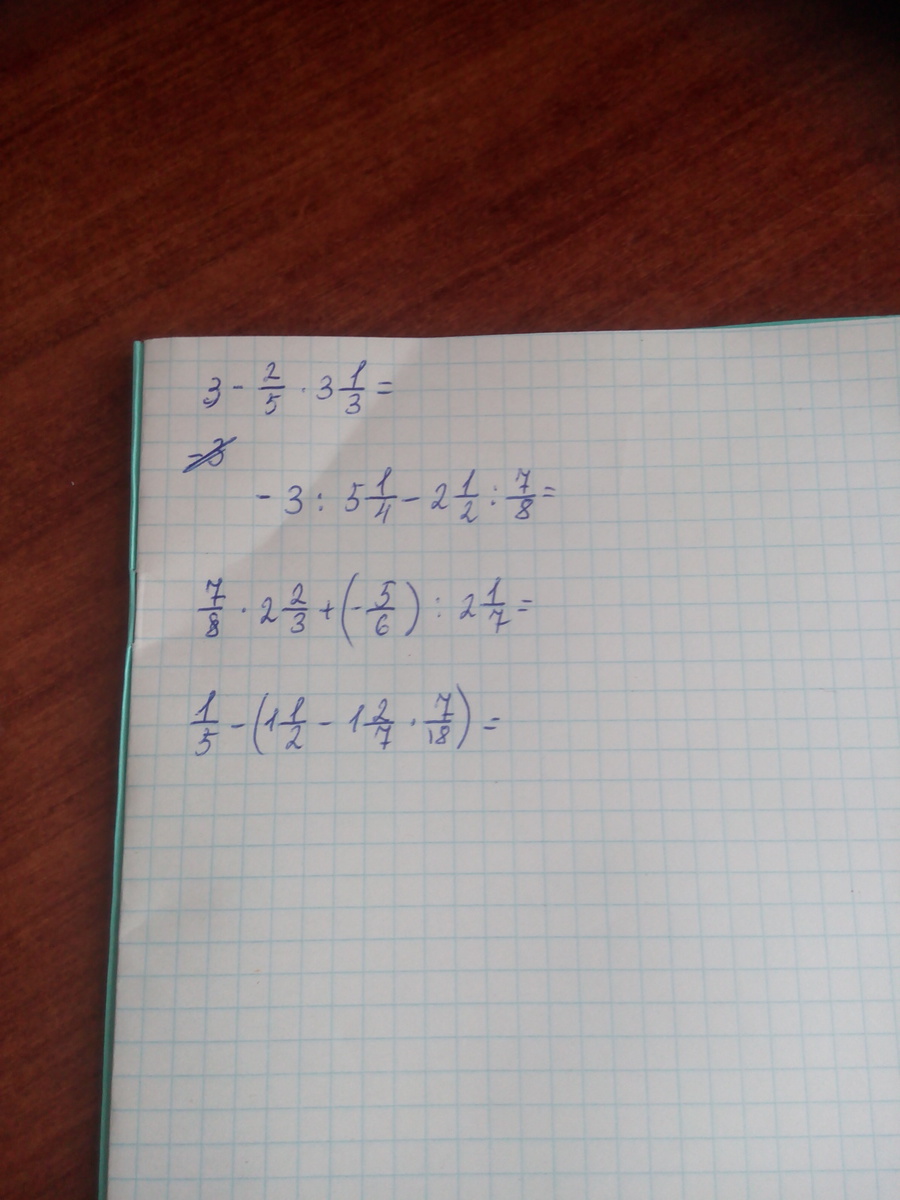 3 - 2/5 · 3 1/3 =
-3
- 3 : 5 1/4 - 2 1/2 : 7/8 =
7/8 · 2 2/3 + (- 5/6) : 2 1/7 =
1/5 - (1 1/2 - 1 2/7 · 7/18) =